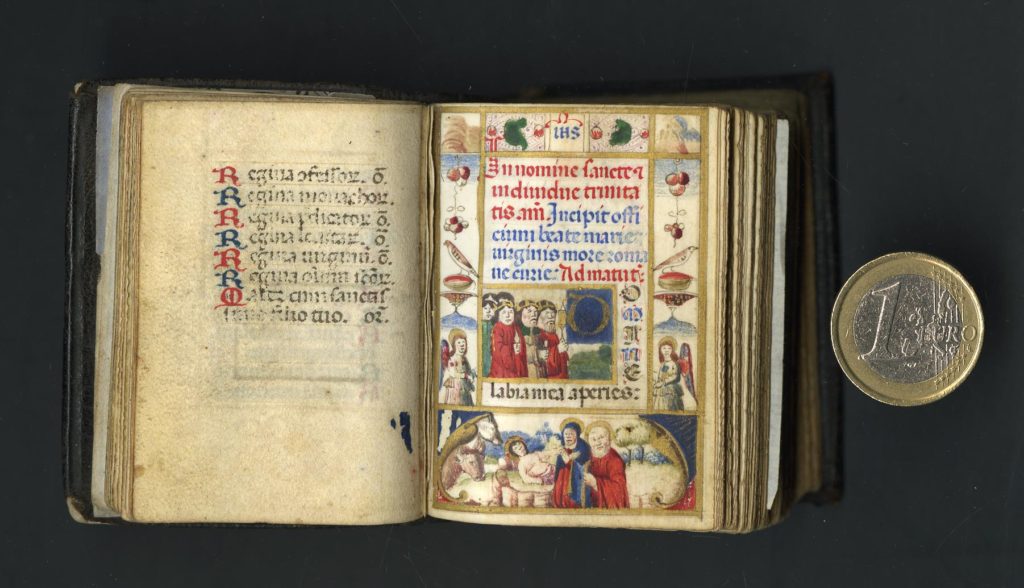 Regina ꝯfessoꝝ. ō.
Regina monachoꝝ.
Regina p̄dicatoꝝ. ō.
Regina leuitaꝝ. ō.
Regina uirginū. ō.
Regina oīum scōꝝ.
Mater cum sanctis
simo filio tuo. or̄.
ihs
In nomine sancte &
indiuidue trinita
tis. am̄. Incipit offi
cium beate marie
uirginis more roma
ne curie. Ad matut:
DOMINE
labia mea aperies:
1 EURO